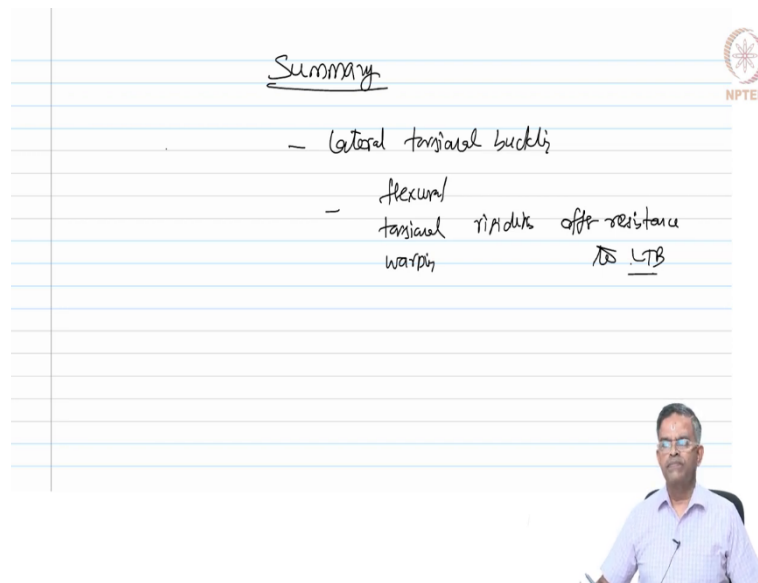 Summary
NPTE
- lateral torsional buckling
flexural
- torsional rigidities offer resistance
warping to LTB